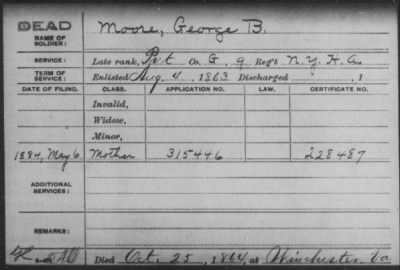 DEAD
NAME OF SOLDIER: Moore, George B.
SERVICE: Late rank, Pvt Co. G, 9 Reg't N.Y.H.A.
TERM OF SERVICE: Enlisted Aug. 4, 1863 Discharged , 1
DATE OF FILING. CLASS. APPLICATION NO. LAW. CERTIFICATE NO.
Invalid,
Widow,
Minor,
1884, May 6 Mother 315446 228487
ADDITIONAL SERVICES:
REMARKS:
Died Oct. 25, 1864, at Winchester, Va